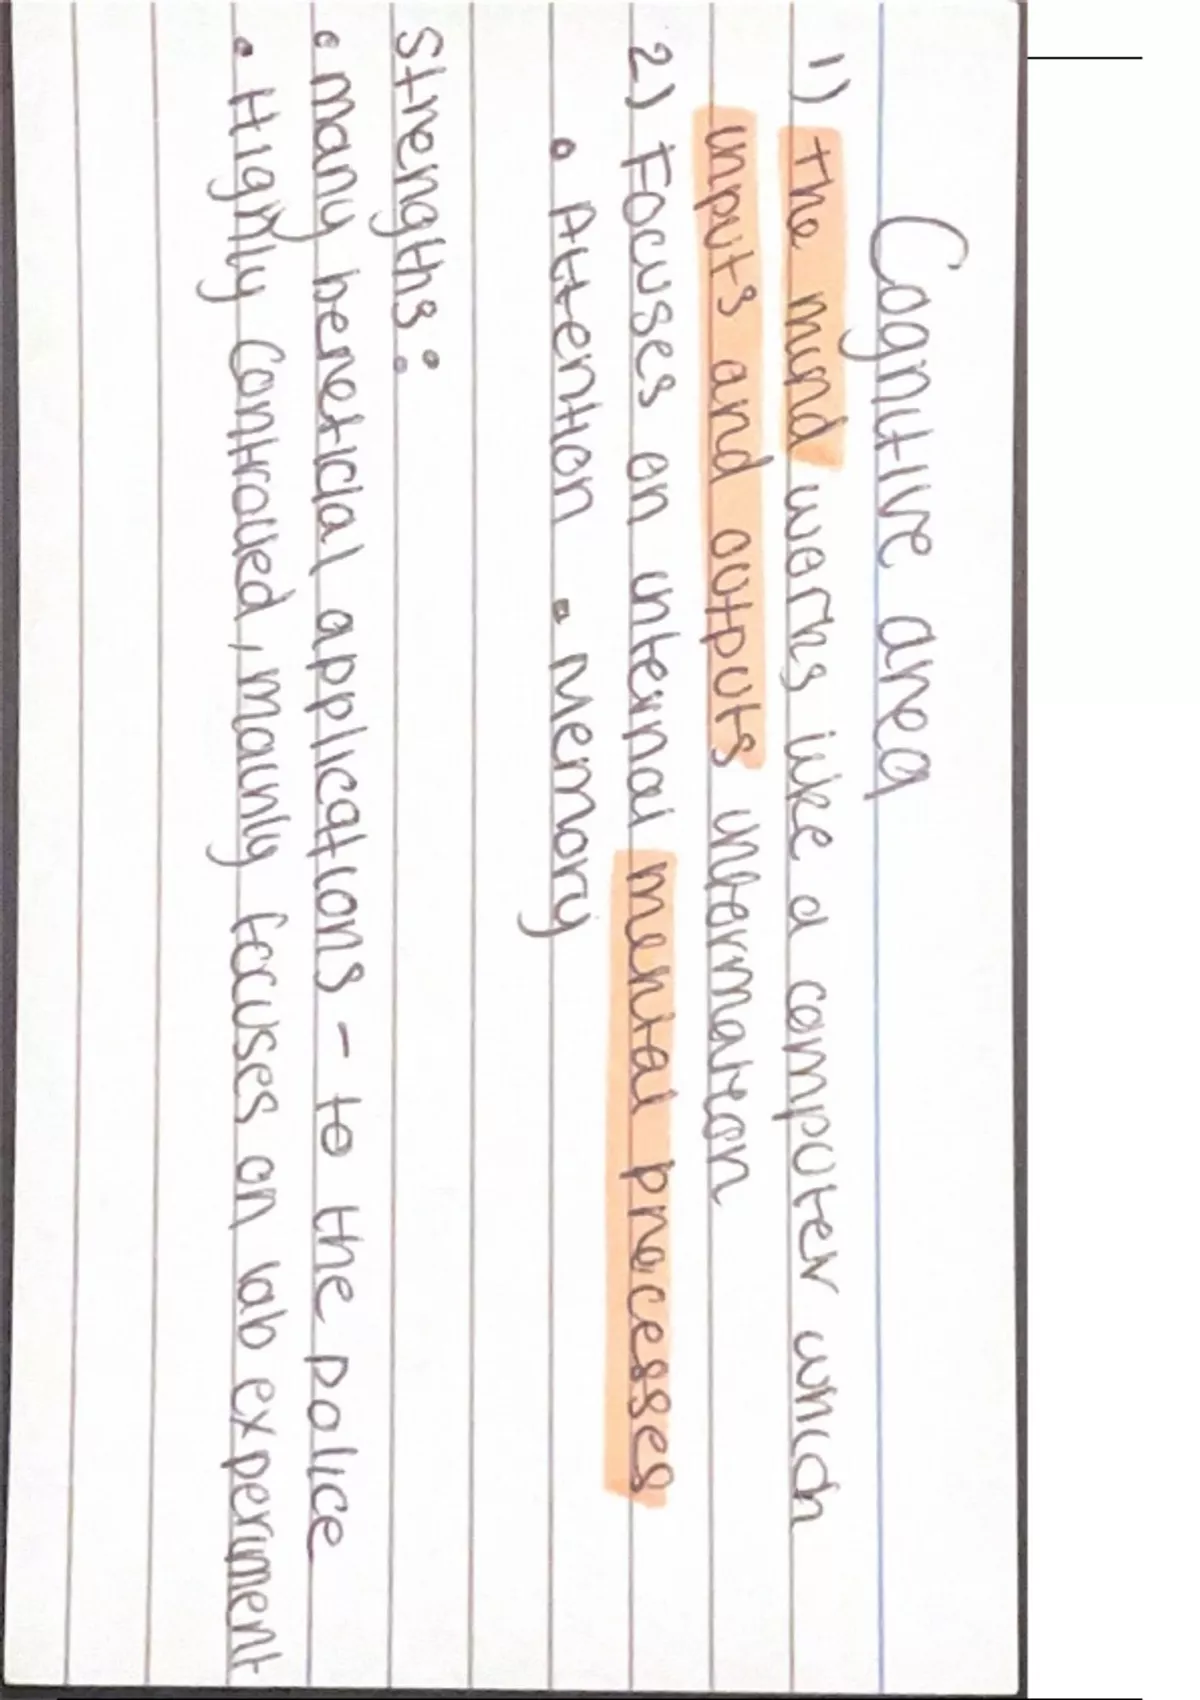 Cognitive area
1) The mind works like a computer which
inputs and outputs information
2) Focuses on internal mental processes
• Attention • Memory
Strengths:
• many beneficial applications - to the police
• Highly controlled, mainly focuses on lab experiment